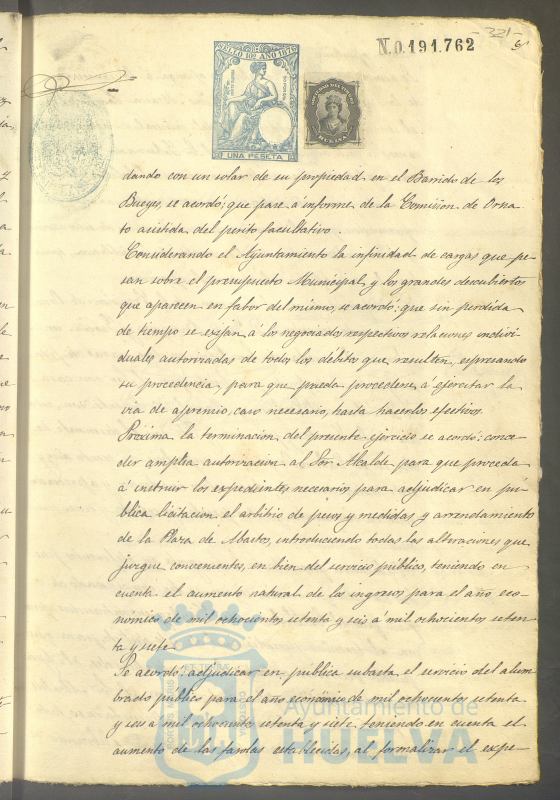 321
6
N.0.191.762
SELLO 10º AÑO 1876
UNA PESETA
dando con un solar de su propiedad en el Barrido de los
Bueyes, se acordó; que pase a informe de la Comision de Orna
to asistida del perito facultativo.
Considerando el Ayuntamiento la infinidad de cargas que pe-
san sobre el presupuesto Municipal, y los grandes descubiertos
que aparecen en favor del mismo, se acordó; que sin perdida
de tiempo se exijan, á los negociados respectivos relaciones indivi-
duales autorizadas de todos los débitos que resulten, espresando
su procedencia, para que pueda procederse a ejercitar la
via de apremio, caso necesario, hasta hacerlos efectivos.
Proxima la terminacion del presente ejercicio se acordó; conce-
der amplia autorizacion al Sor Alcalde para que proceda
á instruir los expedientes necesarios para adjudicar en pú-
blica licitacion el arbitrio de pesos y medidas y arrendamiento
de la Plaza de Abastos, introduciendo todas las alteraciones que
juzgue convenientes, en bien del servicio público, teniendo en
cuenta el aumento natural de los ingresos para el año eco-
nómico de mil ochocientos setenta y seis á mil ochocientos seten
ta y siete.
Se acordó: adjudicar en pública subasta el servicio del alum
brado público para el año económico de mil ochocientos setenta
y seis a mil ochocientos setenta y siete, teniendo en cuenta el
aumento de las farolas establecidas, al formalizar el expe-
Ayuntamiento de
HUELVA